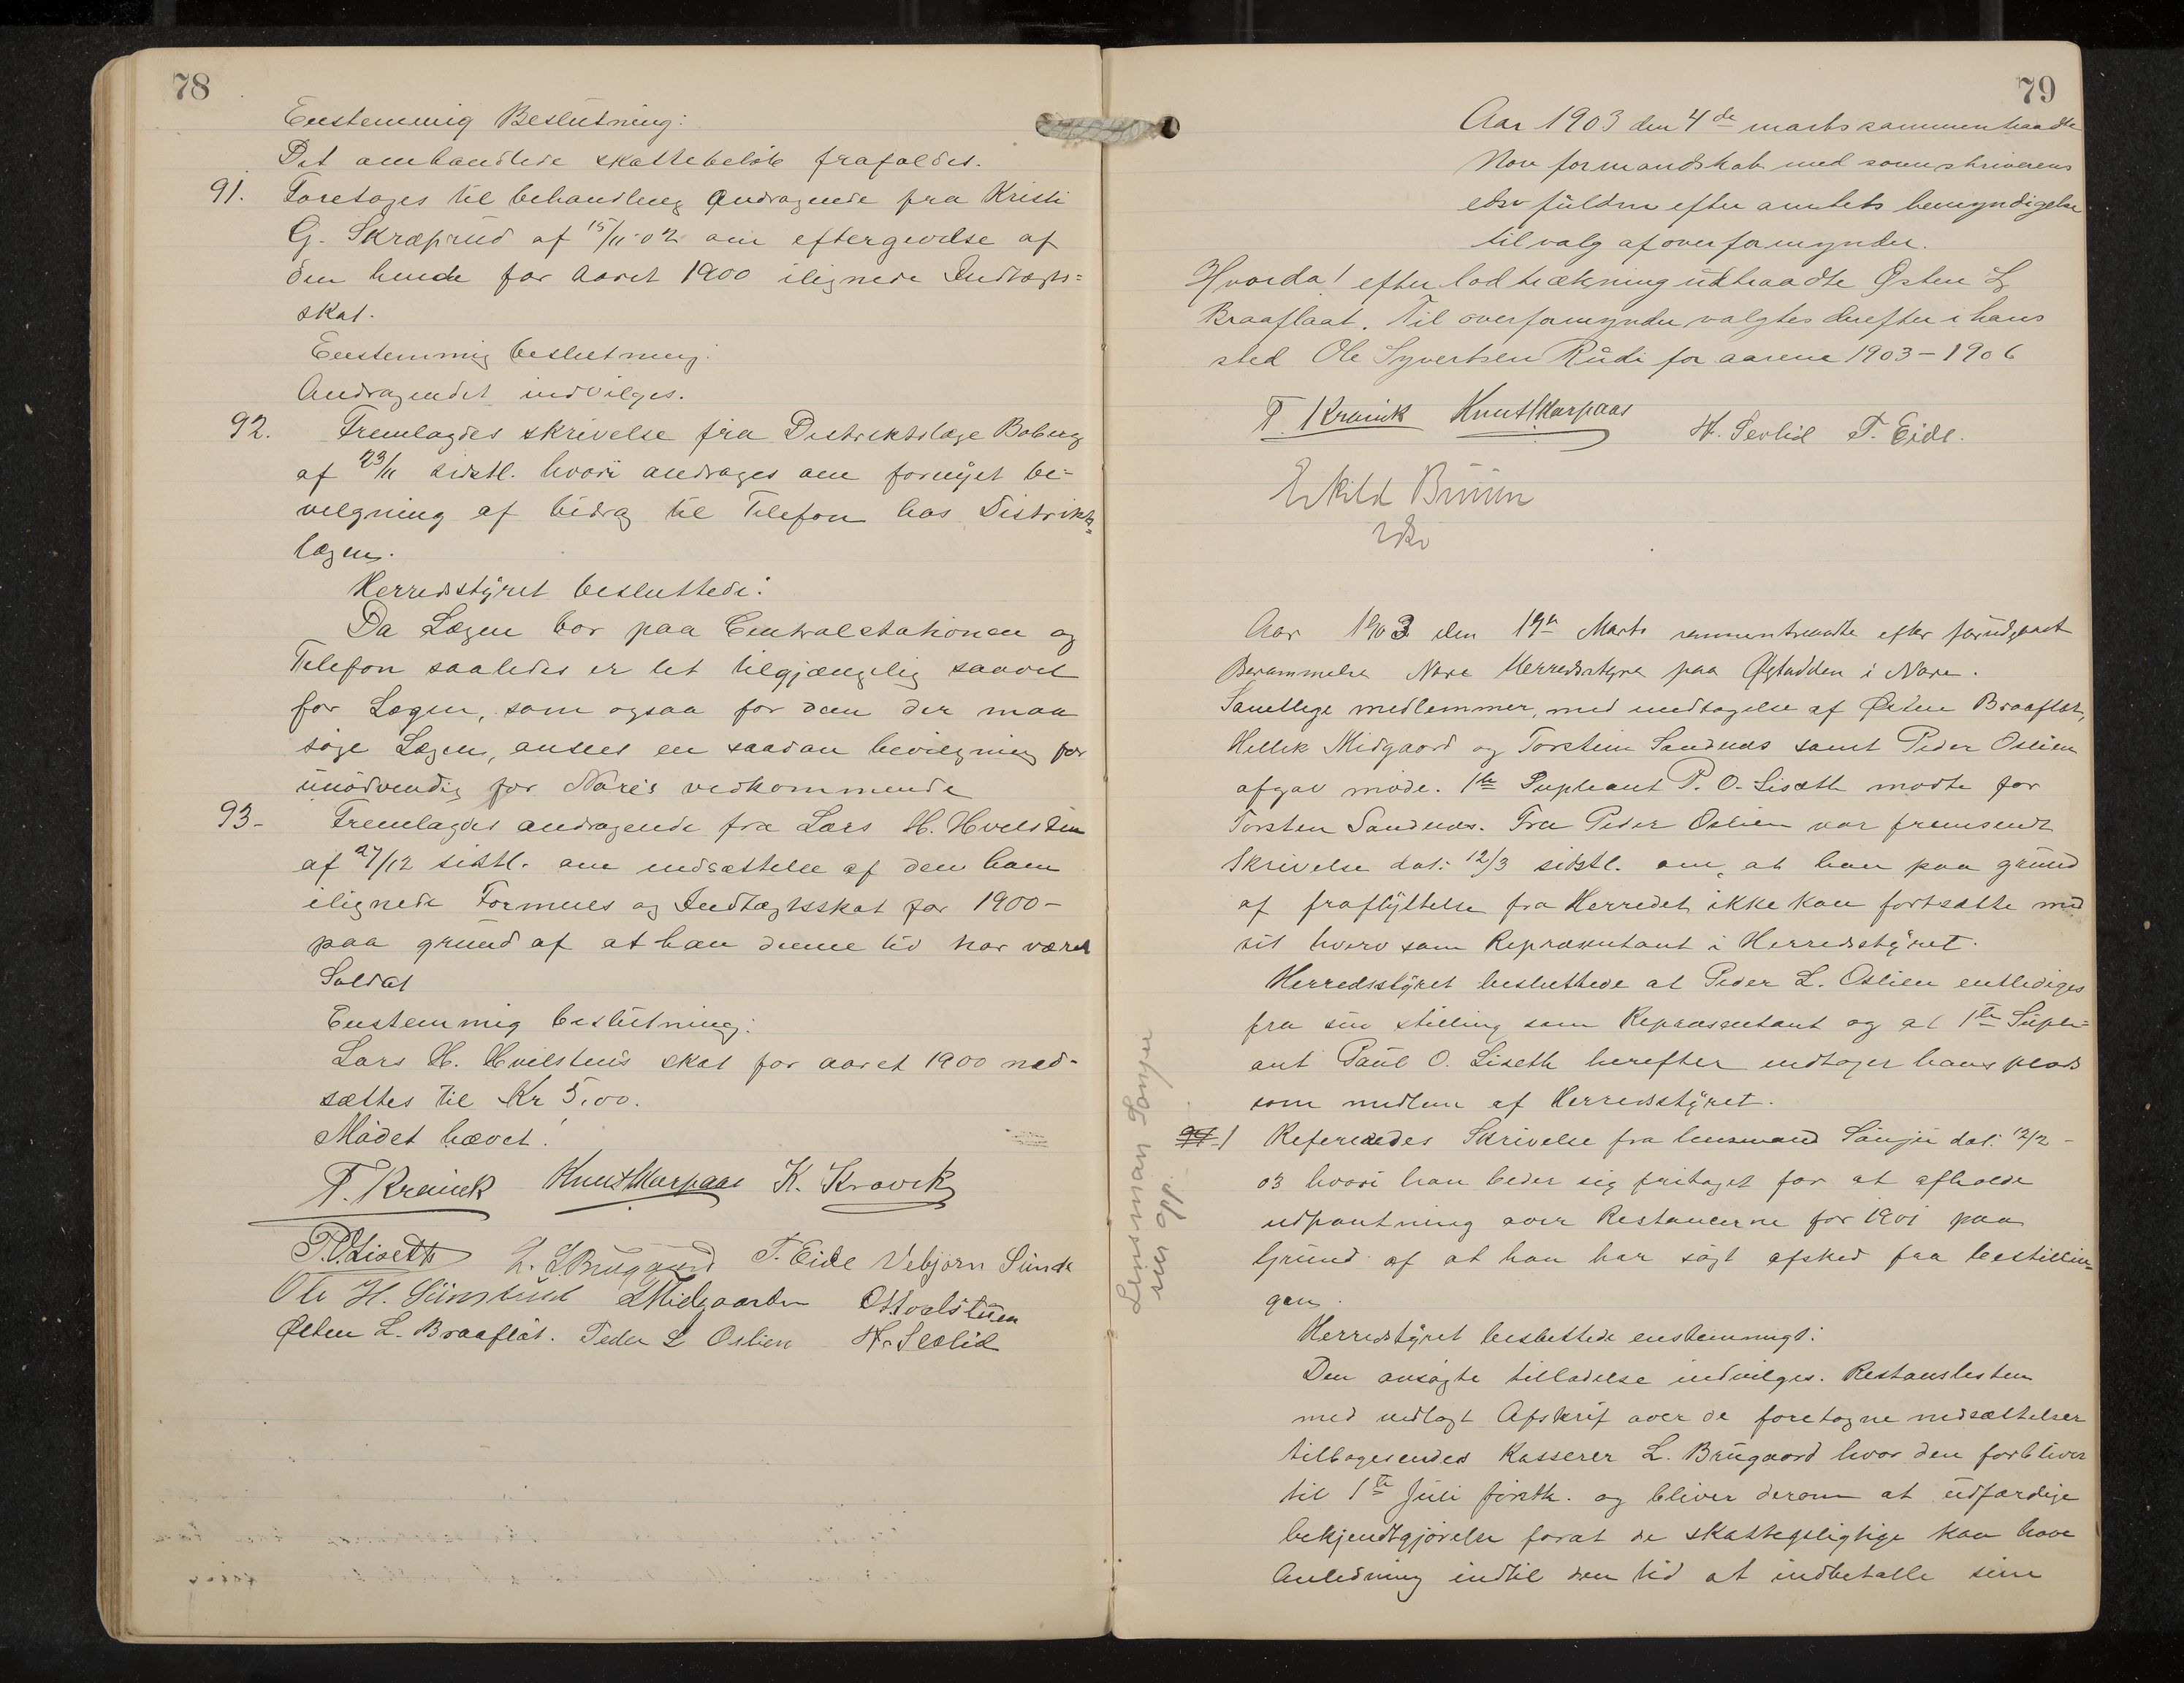 78
Enstemmig Beslutning:
Det omhandlede skattebeløb frafaldes.
91. Foretoges til behandling Andragende fra Kristi
G. Skraprud af 15/11-02 om eftergivelse af
den hende for Aaret 1900 ilignede Indtægts=
skat.
Enstemmig beslutning:
Andragendet indvilges.
92. Fremlagdes skrivelse fra Distriktslæge Boberg
af 23/11 sidstl. hvori andrages om fornyet be-
vilgning af bidrag til Telefon hos Distrikts=
lægen.
Herredsstyret besluttede:
Da Lægen bor paa Centralstationen og
Telefon saaledes er let tilgjængelig saavel
for Lægen, som ogsaa for dem der maa
søge Lægen, ansees en saadan bevilgning for
unødvendig for Nore's vedkommende
93- Fremlagdes andragende fra Lars H. Hvelstun
af 27/12 sidstl. om nedsættelse af den ham
ilignede Formues og Indtægtsskat for 1900-
paa grund af at han denne tid har været
Soldat
Enstemmig beslutning:
Lars H. Hvilstuns skat for aaret 1900 ned-
sættes til Kr 5,00.
Mødet hævet!
T. Kravik Knut Skarpaas K. Kravik
P.O. Liseth L. L. Bruggaard T. Eide Vebjørn Sunde
Ole H. Midgaarden O Hvalstuen
Østen L. Braaflåt. Peder L Oslien H. Sevlid
79
Aar 1903 den 4de marts sammentraadte
Nore formandskab med sorenskriverens
edsv fuldm efter amtets bemyndigelse
til valg af overformynder.
Hvorda! efter lodtrækning udtraadte Østen L
Braaflaat. Til overformynder valgtes derefter i hans
sted Ole Syvertsen Rudi for aarene 1903-1906
T. Kravik Knut Skarpaas
H. Sevlid T. Eide.
Eskild Bruun
edsv
Aar 1903 den 19de Marts sammentraadte efter forudgaaet
Berammelse Nore Herredsstyre paa Øgstadden i Nore.
Samtlige medlemmer, med undtagelse af Østen Braaflat,
Hellek Midgaard og Torstein Sandnes samt Peder Oslien
afgav møde. 1te Supleant P. O. Liseth mødte for
Torsten Sandnes. Fra Peder Oslien var fremsendt
Skrivelse dat. 12/3 sidstl. om, at han paa grund
af fraflyttelse fra Herredet ikke kan fortsætte med
sit hverv som Repræsentant i Herredsstyret.
Herredsstyret besluttede at Peder L. Oslien entlediges
fra sin stilling som Repræsentant og at 1te Suple=
ant Paul O. Liseth herefter indtager hans plads
som medlem af Herredsstyret.
94 1 Refereredes Skrivelse fra lensmand Sønju dat. 12/2-
03 hvori han beder sig fritaget for at afholde
udpantning over Restancerne for 1901 paa
Grund af at han har søgt afsked fra bestillin=
gen.
Herredstyret besluttede enstemmigt:
Den ansøgte tilladelse indvilges. Restanslisten
med vedlagt Afskrif over de foretagne nedsættelser
tilbagesendes Kasserer L. Brugaard hvor den forbliver
til 1te Juli førstk. og bliver derom at udfærdige
bekjendtgjørelse forat de skattepligtige kan have
Anledning indtil den tid at indbetalle sine